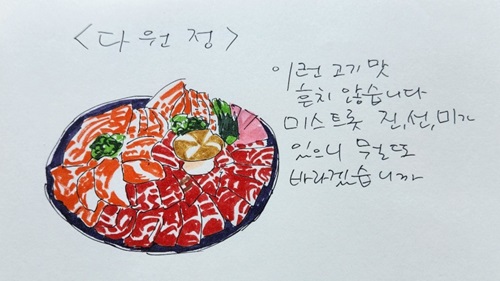 <다원정>
이런 고기 맛
흔치 않습니다
미스트롯 진,선,미가
있으니 무얼 또
바라겠습니까